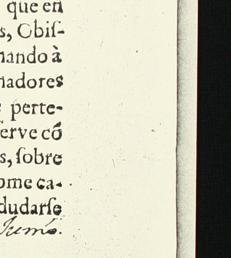 que en
s, Obiſ-
nando à
nadores
perte-
erve cõ
s, ſobre
ome ca-
dudarſe